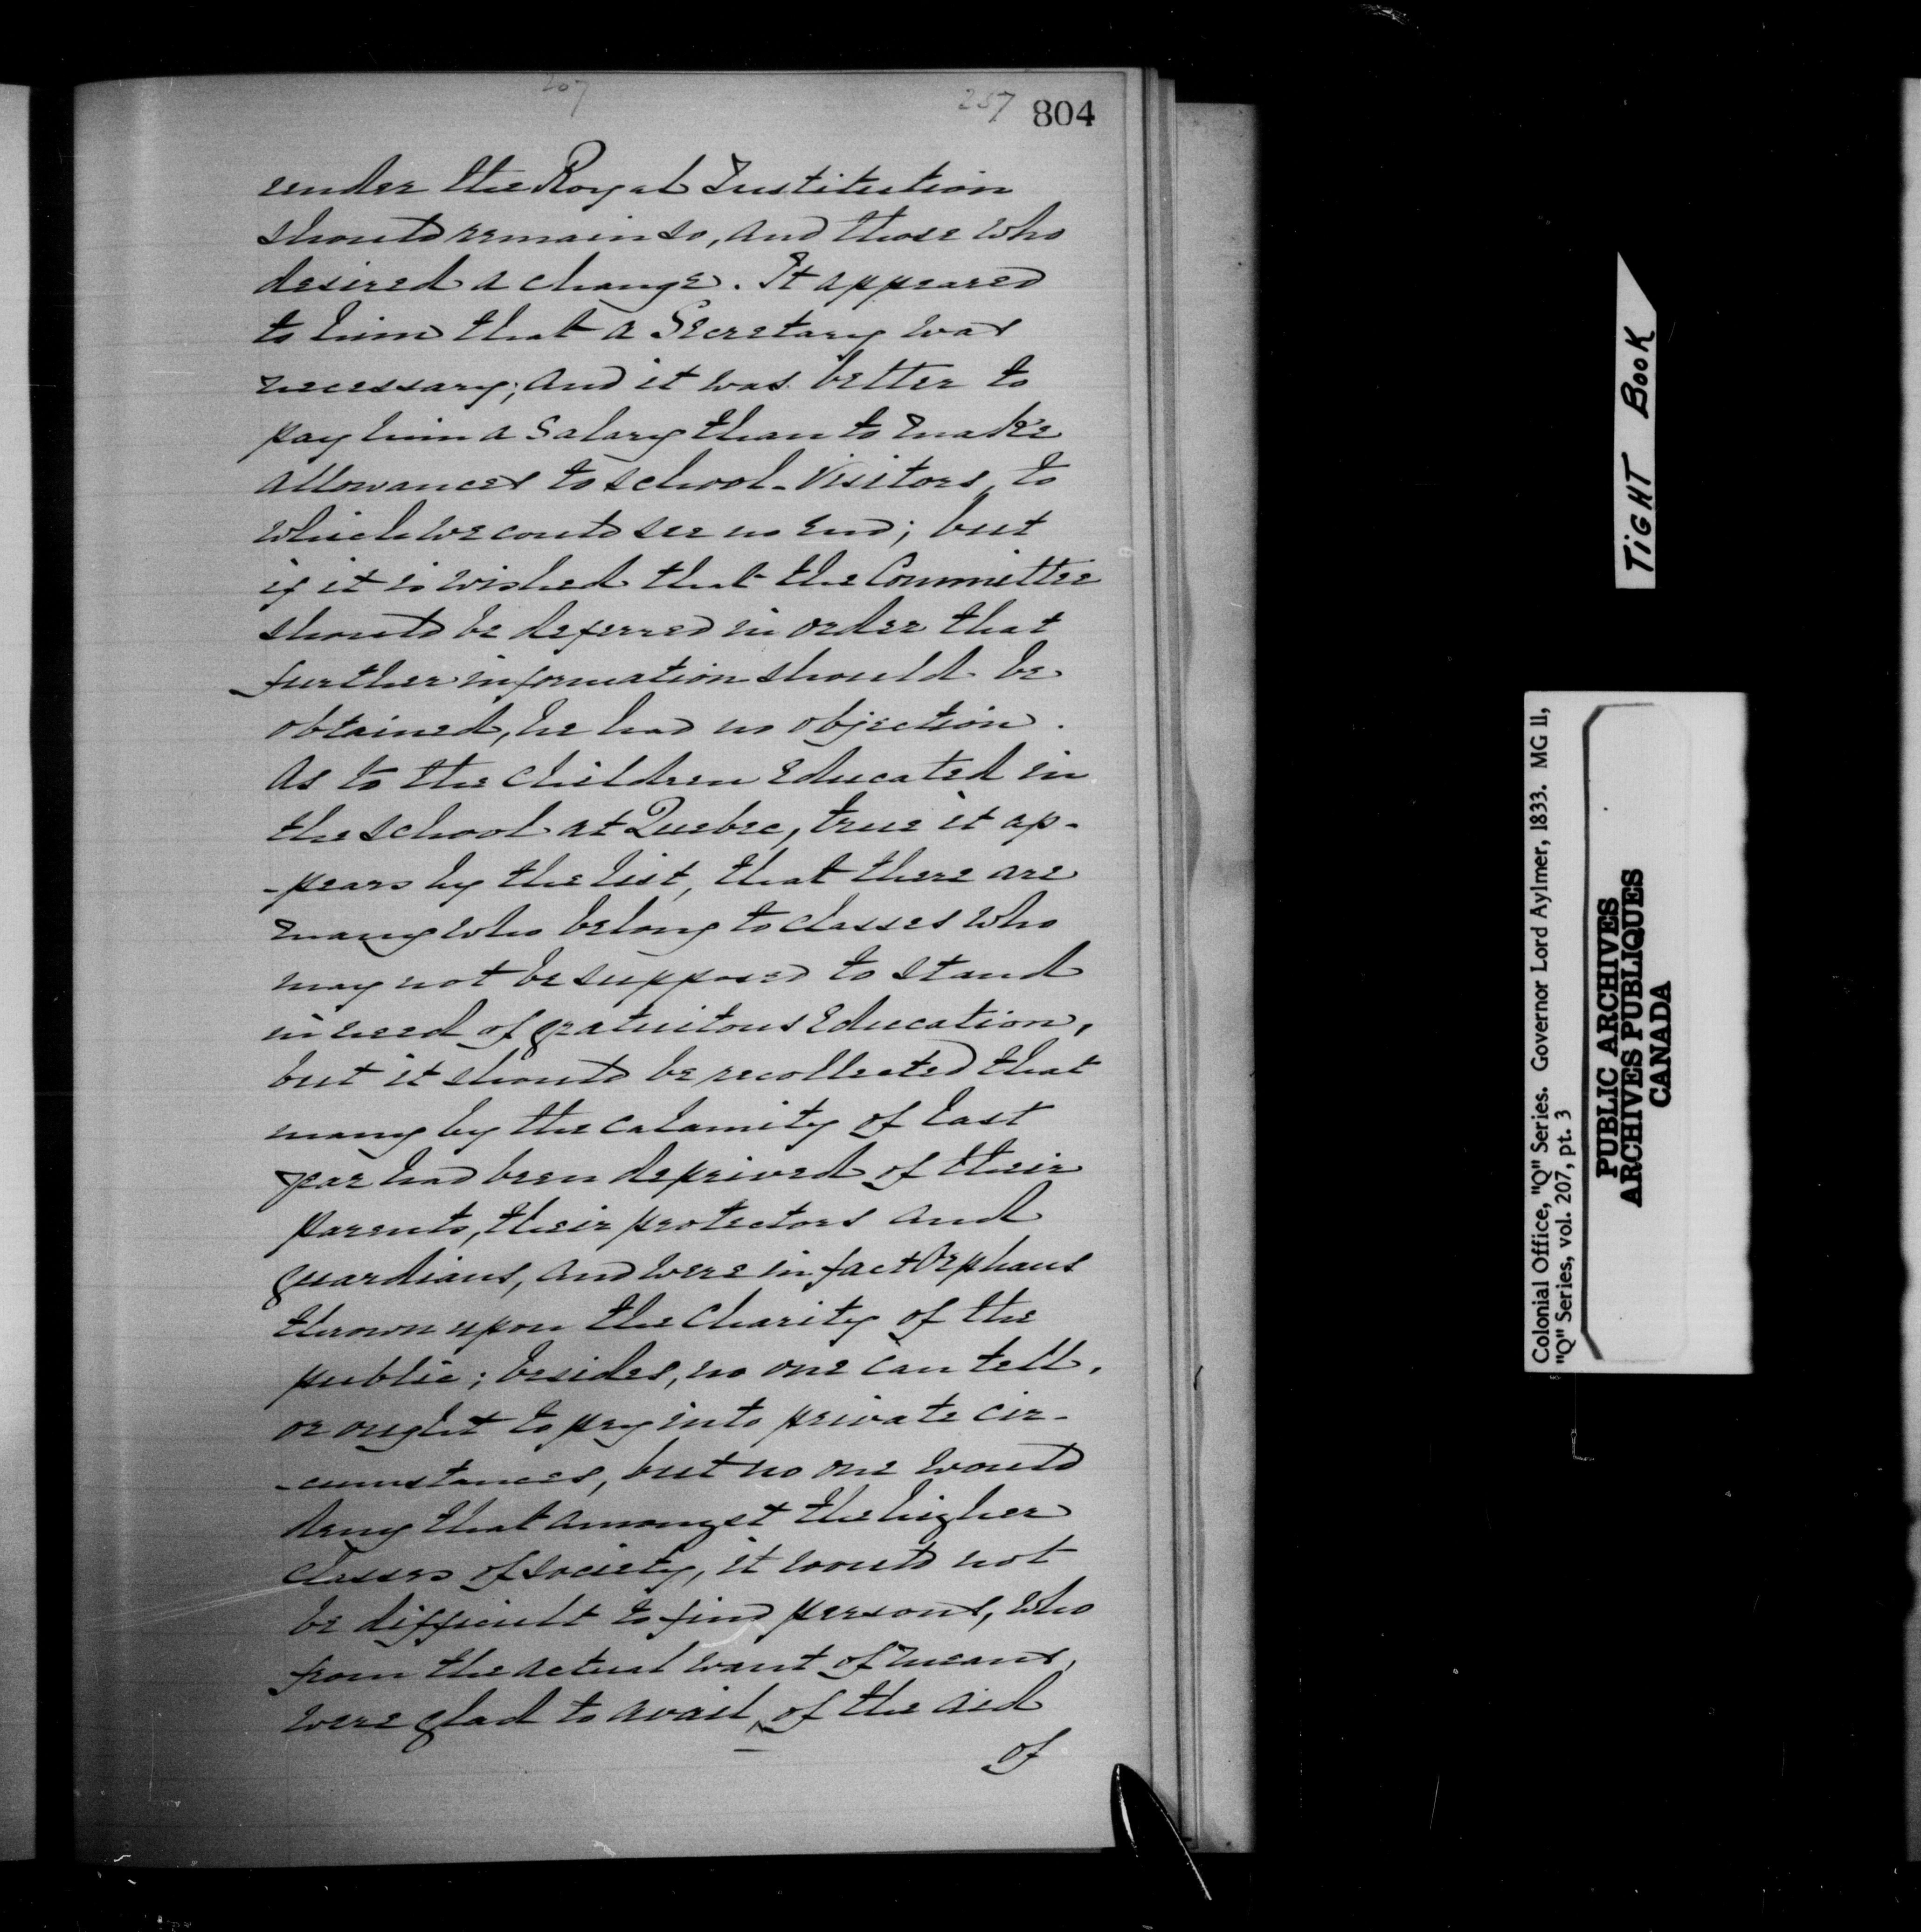 207
257 804
under the Royal Institution
should remain so, and those who
desired a change. It appeared
to him that a Secretary was
necessary; and it was better to
pay him a salary than to make
allowances to school-visitors, to
which we could see no end; but
if it is wished that the Committee
should be deferred in order that
further information should be
obtained, he had no objection.
As to the children educated in
the school at Quebec, true it ap-
-pears by the list, that there are
many who belong to classes who
may not be supposed to stand
in need of gratuitous Education,
but it should be recollected that
many by the calamity of last
year had been deprived of their
parents, their protectors and
guardians, and were in fact Orphans
thrown upon the Charity of the
public; besides, no one can tell,
or ought to pry into private cir-
-cumstances, but no one would
deny that amongst the higher
classes of society, it would not
be difficult to find persons, who
from the actual want of means,
were glad to avail of the aid
of
TIGHT BOOK
Colonial Office, "Q" Series. Governor Lord Aylmer, 1833. MG 11,
"Q" Series, vol. 207, pt. 3
PUBLIC ARCHIVES
ARCHIVES PUBLIQUES
CANADA